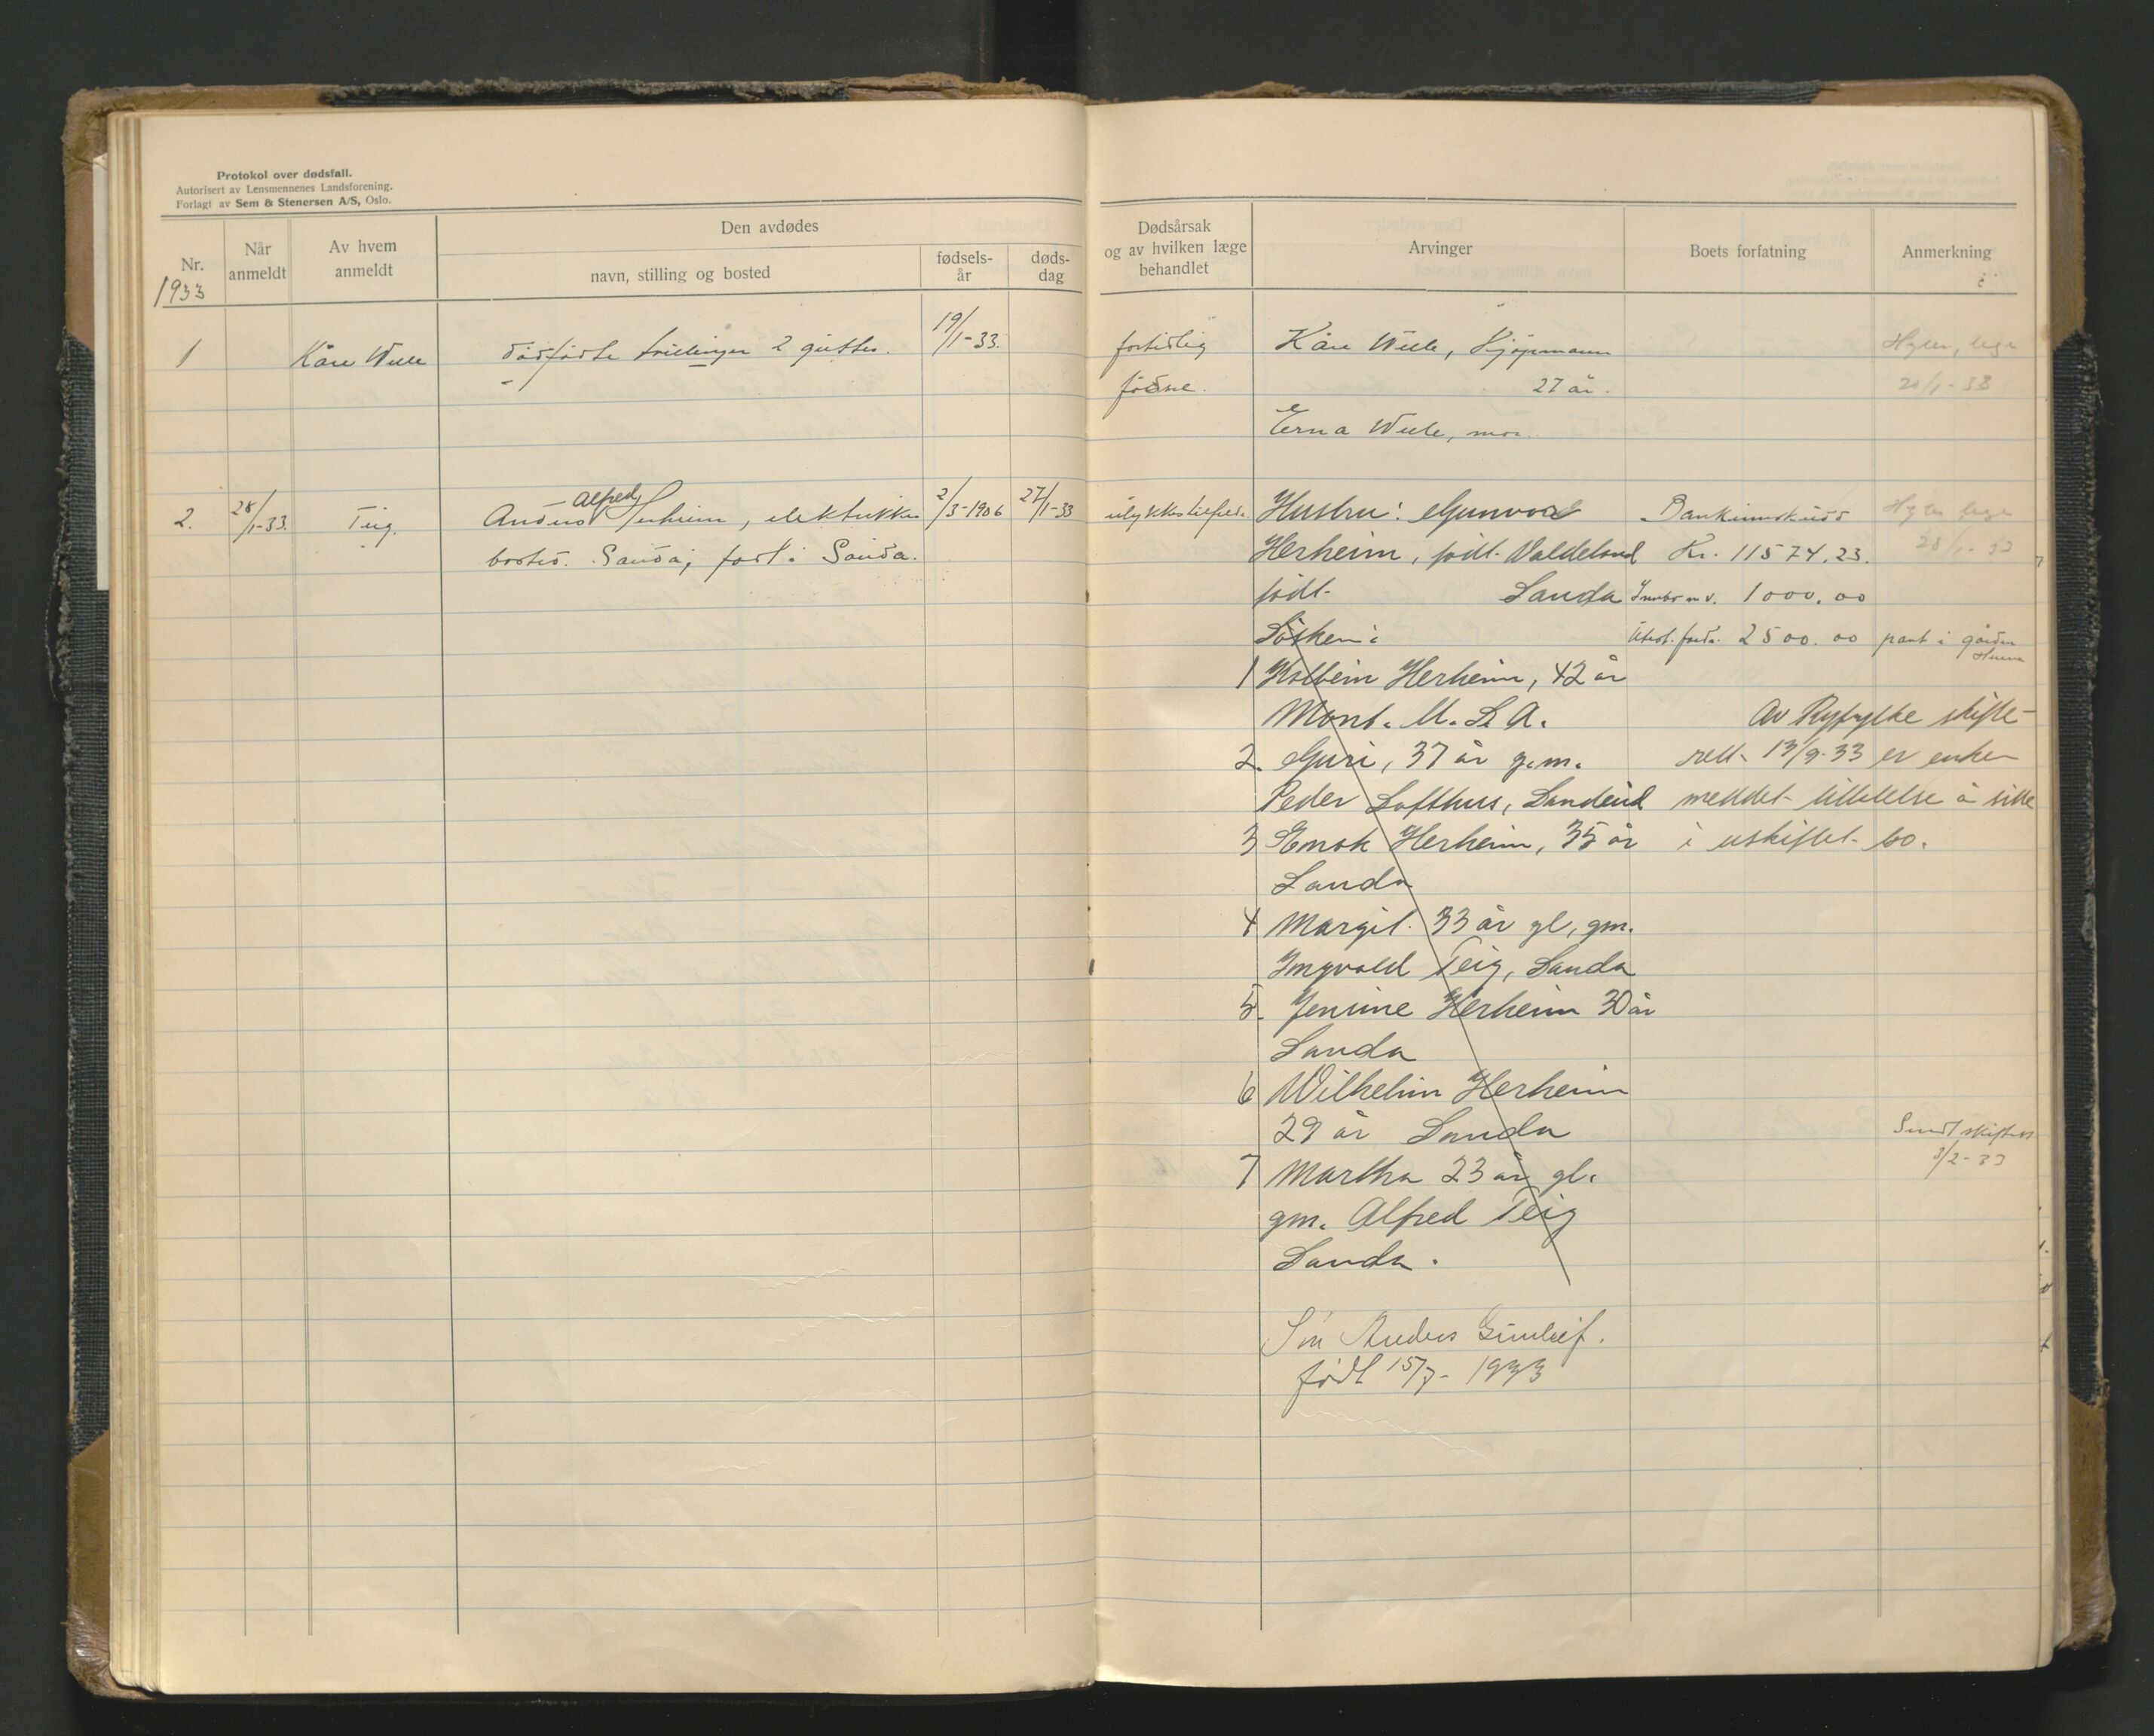 Protokol over dødsfall.
Autorisert av Lensmennenes Landsforening.
Forlagt av Sem & Stenersen A/S, Oslo.
Nr.
1933
Når
anmeldt
Av hvem
anmeldt
Den avdødes
navn, stilling og bosted
fødsels-
år
døds-
dag
Dødsårsak
og av hvilken læge
behandlet
Arvinger
Boets forfatning
Anmerkning
1
Kåre
dødfødte 2 gutter.
19/1-33.
fortidlig
fødsel.
Kåre Kjøpmann
27 år.
Erna mor.
Hylen, lege
20/1-33
2.
28/1-33.
Teig.
Anders Alfred Herheim, elektriker
bosted. Sauda, født i Sauda.
2/3-1906
27/1-33
ulykkestilfelle
Hustru: Gunvor
Herheim, født Valdeland
født Sauda
Søsken:
1 Kolbein Herheim, 42 år
Mont. U.S.A.
2. Guri, 37 år g.m.
Peder Lofthus, Sandeid
3 Enok Herheim, 35 år
Sauda
4 Margit 33 år gl, gm.
Ingvald Teig, Sauda
5. Jenine Herheim 30 år
Sauda
6 Wilhelm Herheim
29 år Sauda
7 Martha 23 år gl.
gm. Alfred Teig
Sauda.
Søn Anders
født 15/7-1933
Bankinnskudd
Kr. 11574.23.
Innbo m.v. 1000.00
Utest. ford. 2500.00 pant i gården
Av Ryfylke skifte-
rett 13/9-33 er enken
meddelt tillatelse å sitte
i uskiftet bo.
Hylen lege
28/1-33
Sendt skifter.
3/2-33